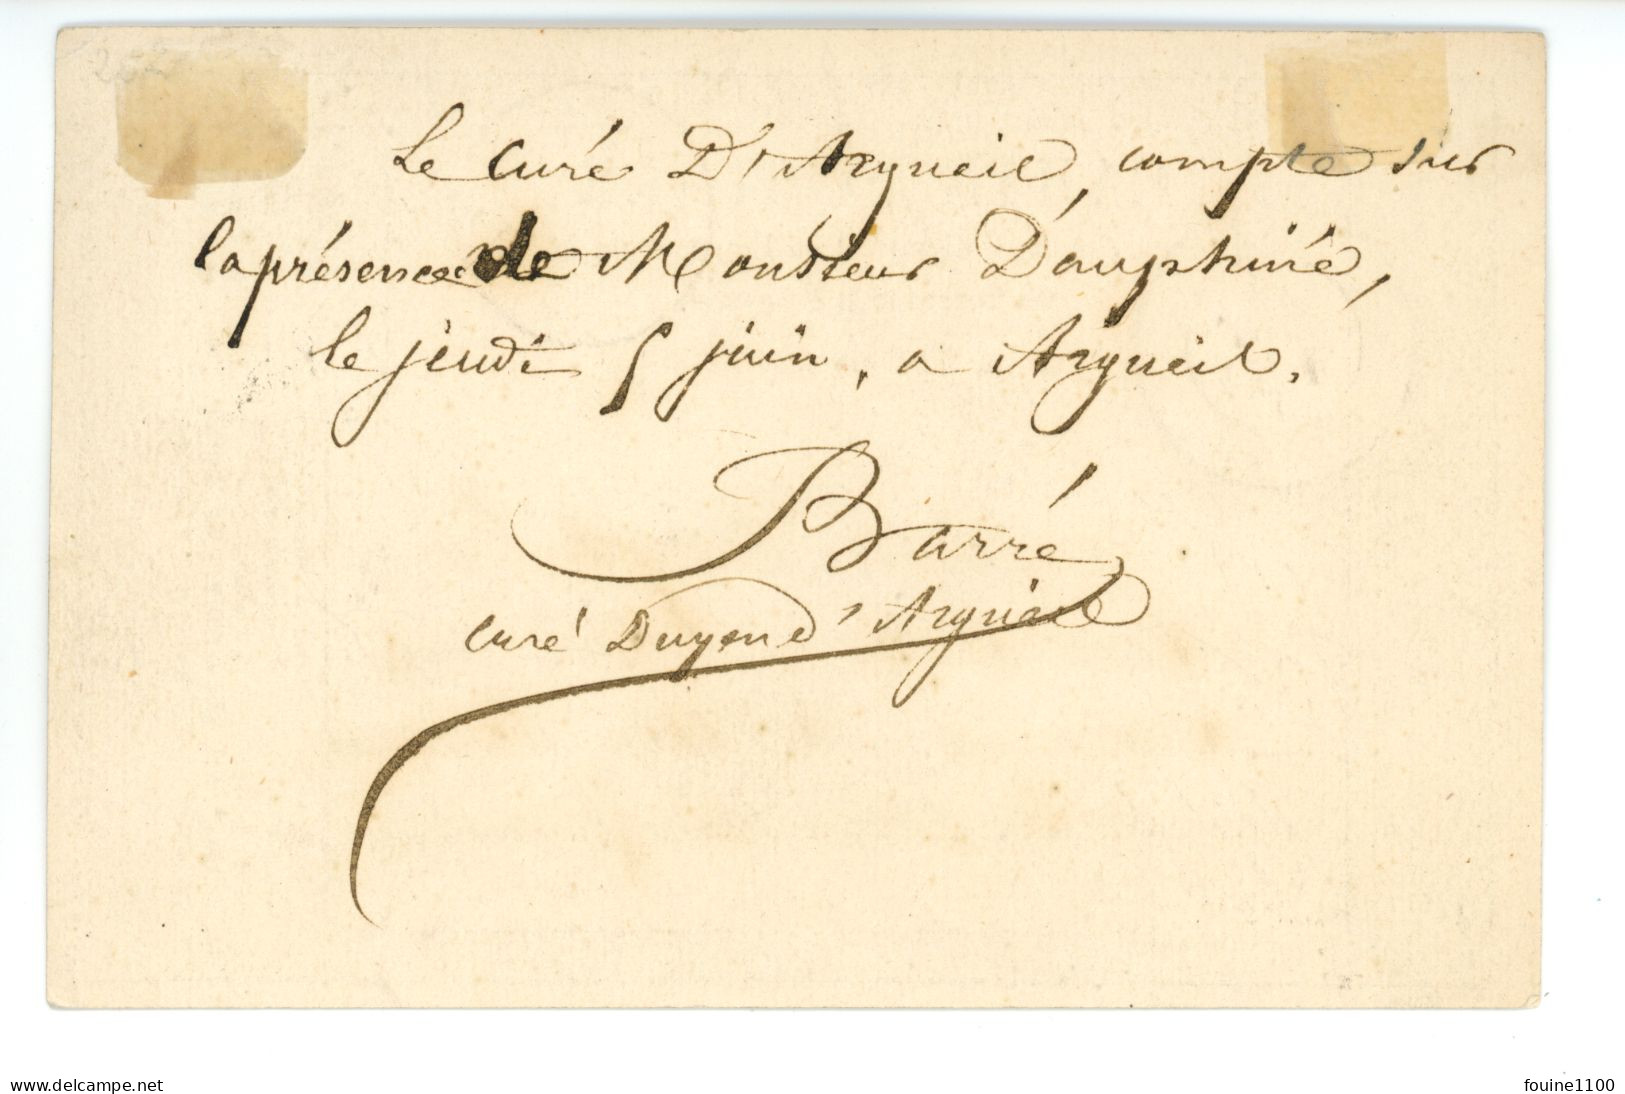 Le Curé D'Argueil, compte sur
la présence de Monsieur Dauphiné,
le jeudi 5 juin, a Argueil.
Barré
curé Doyen d'Argueil
www.delcampe.net
fouine1100